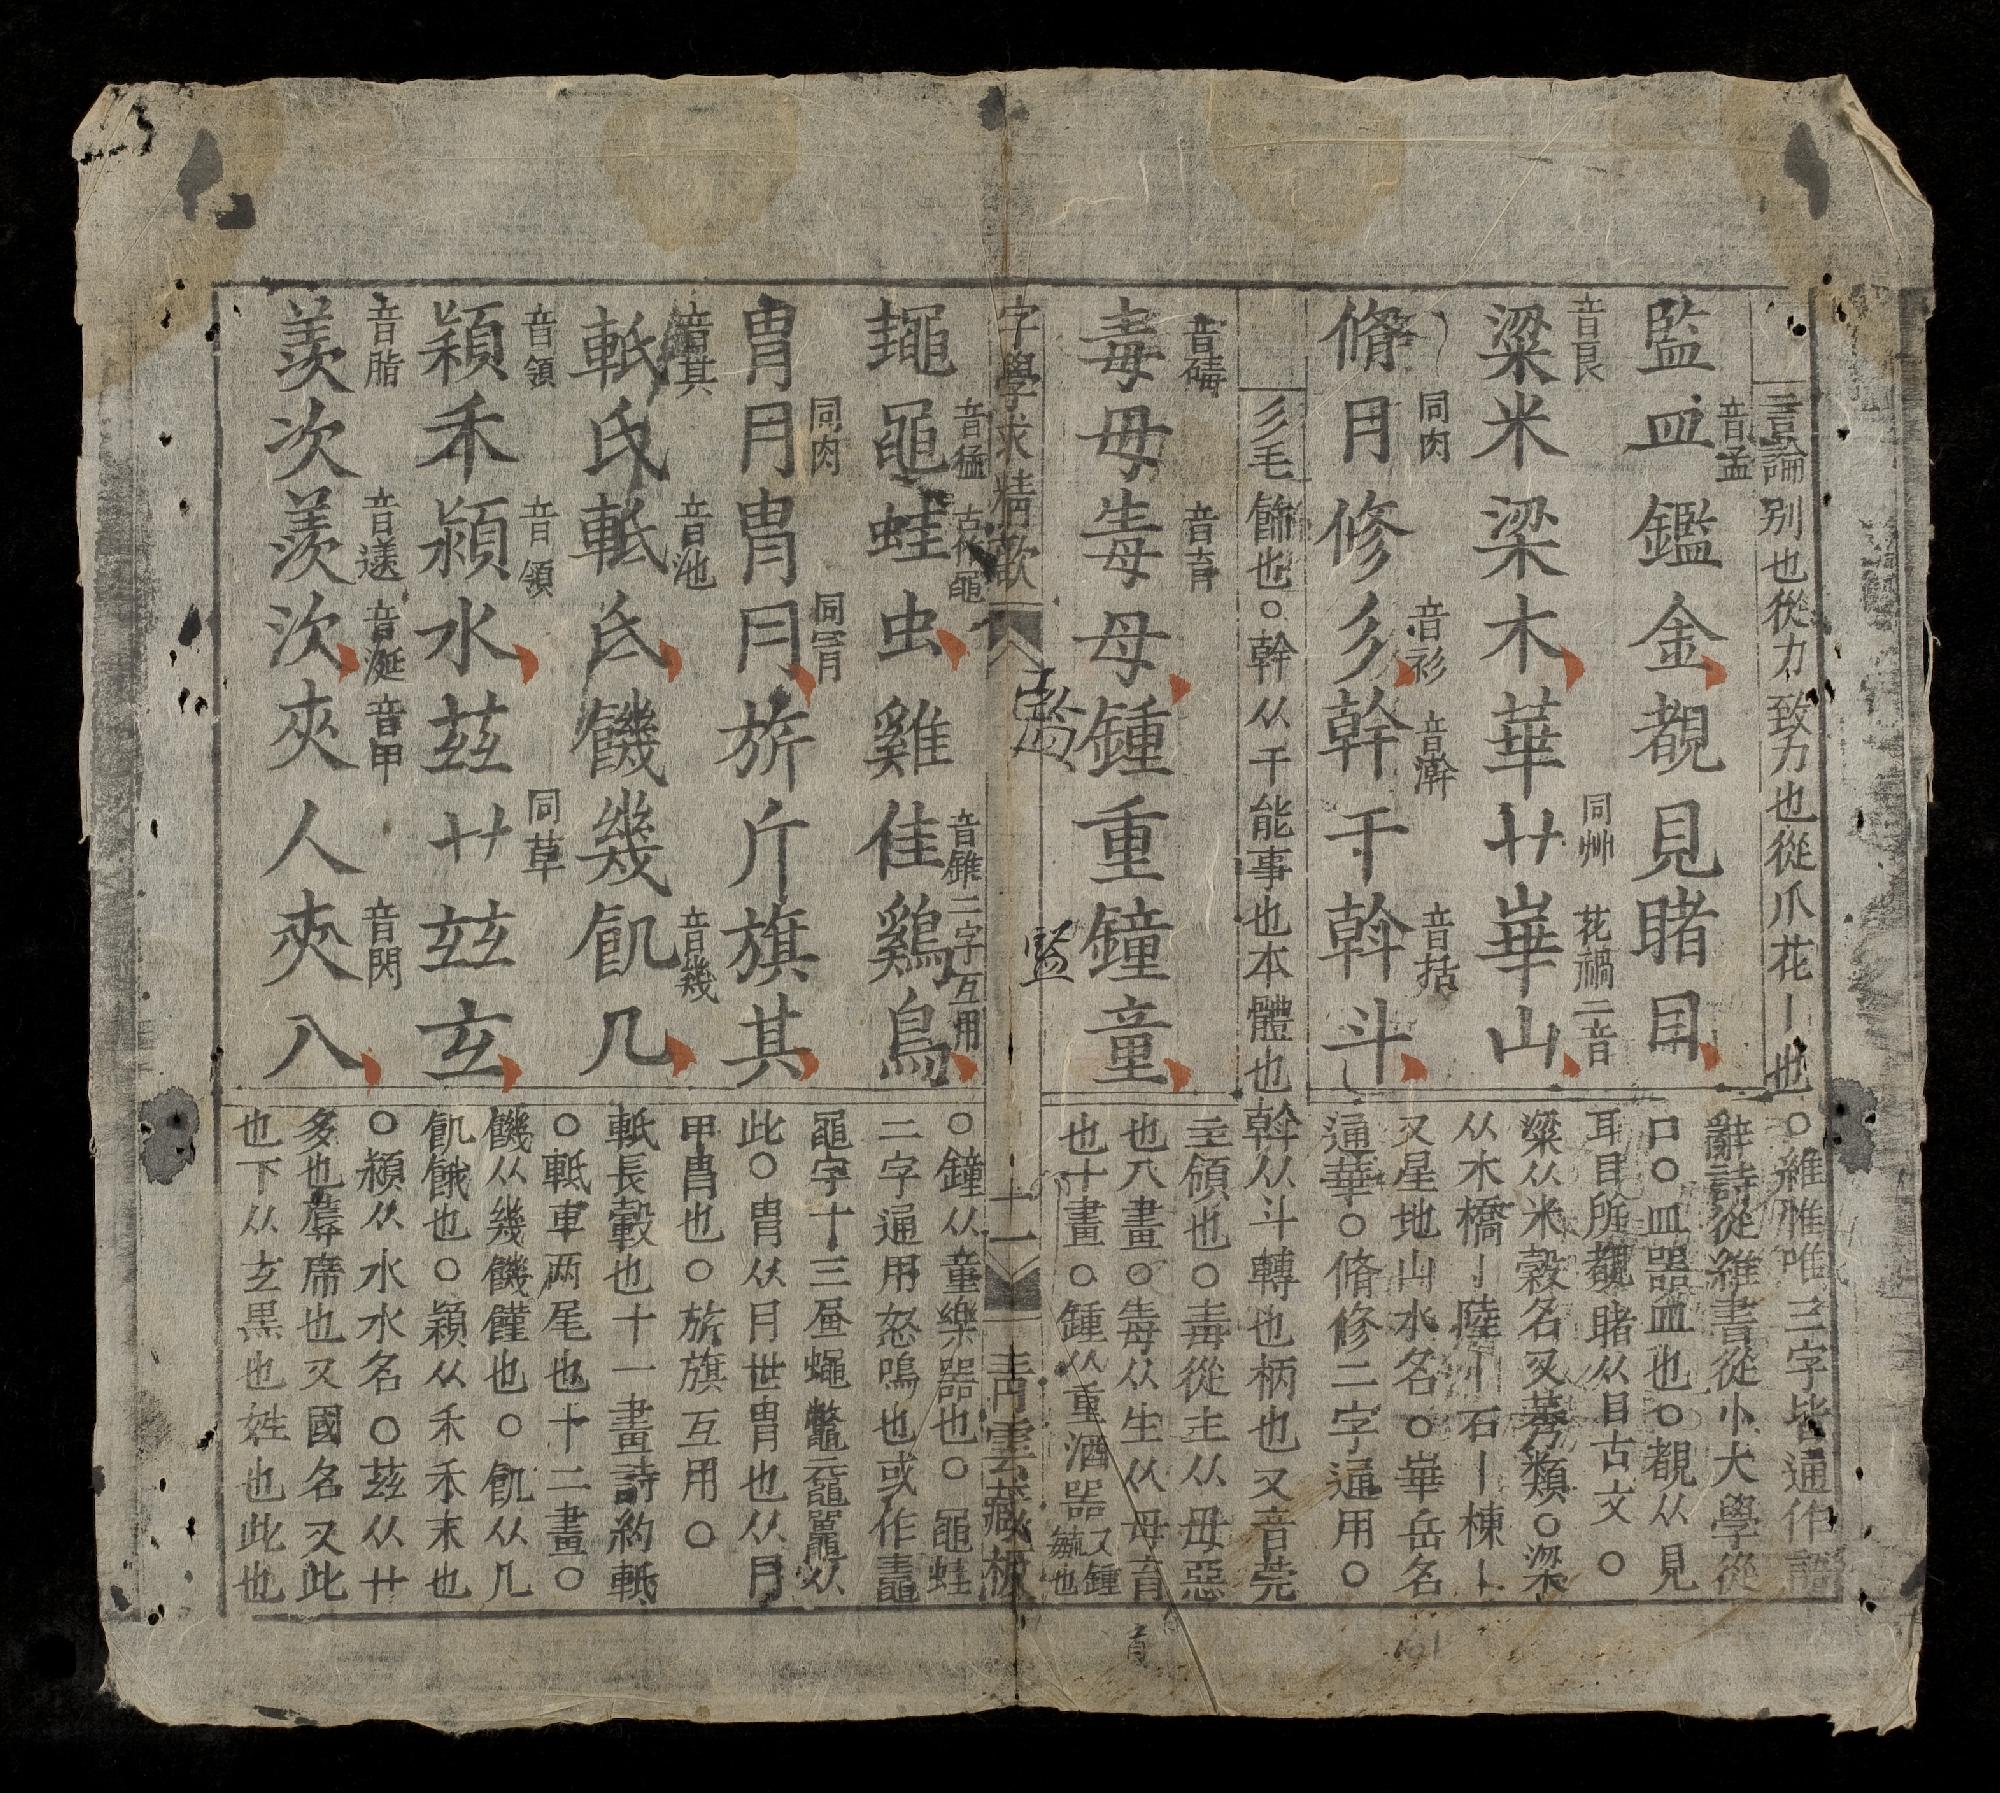 言論別也從力致力也從爪花丨也○維惟唯三字皆通作語
辭詩從維書從小大學從
音孟
監皿鑑金覩見睹目
口○皿器皿也○覩从見
耳目所覩睹从目古文○
音良 同艸 花禍二音
粱米梁木華艹崋山
粱从米穀名又莠類○梁
从木橋丨陸丨石丨棟丨
同肉 音衫 音澣 音括
脩月修彡幹干斡斗
又星地山水名○崋岳名
通華○脩修二字通用○
彡毛飾也○幹从干能事也本體也斡从斗轉也柄也又音莞
音磗 音育
毒毋毒母鍾重鐘童
主領也○毒從主从毋惡
也八畫○毒从生从母育
也十畫○鍾从重酒器又鍾毓也
字學求精歌
二十一
靑雲藏板
音猛 古作黽 音錐二字互用
蠅黽蛙虫雞隹鷄鳥
○鐘从童樂器也○黽蛙
二字通用怒鳴也或作鼃
黽字十三屆蠅鼈黿鼉从
同肉 同冐
胄月冑冃旂斤旗其
此○胄从月世胄也从冃
甲冑也○旂旗互用○
音其 音池 音幾
軝氏軧氐饑幾飢几
軝長轂也十一畫詩約軝
○軧車两尾也十二畫○
饑从幾饑饉也○飢从几
音領 音領 同草
穎禾潁水茲艹玆玄
飢餓也○穎从禾禾末也
○潁从水水名○茲从艹
音脂 音羨 音涎 音甲 音閃
羡次羨㳄夾人夾入
多也蓐席也又國名又此
也下从玄黒也姓也此也
監
首